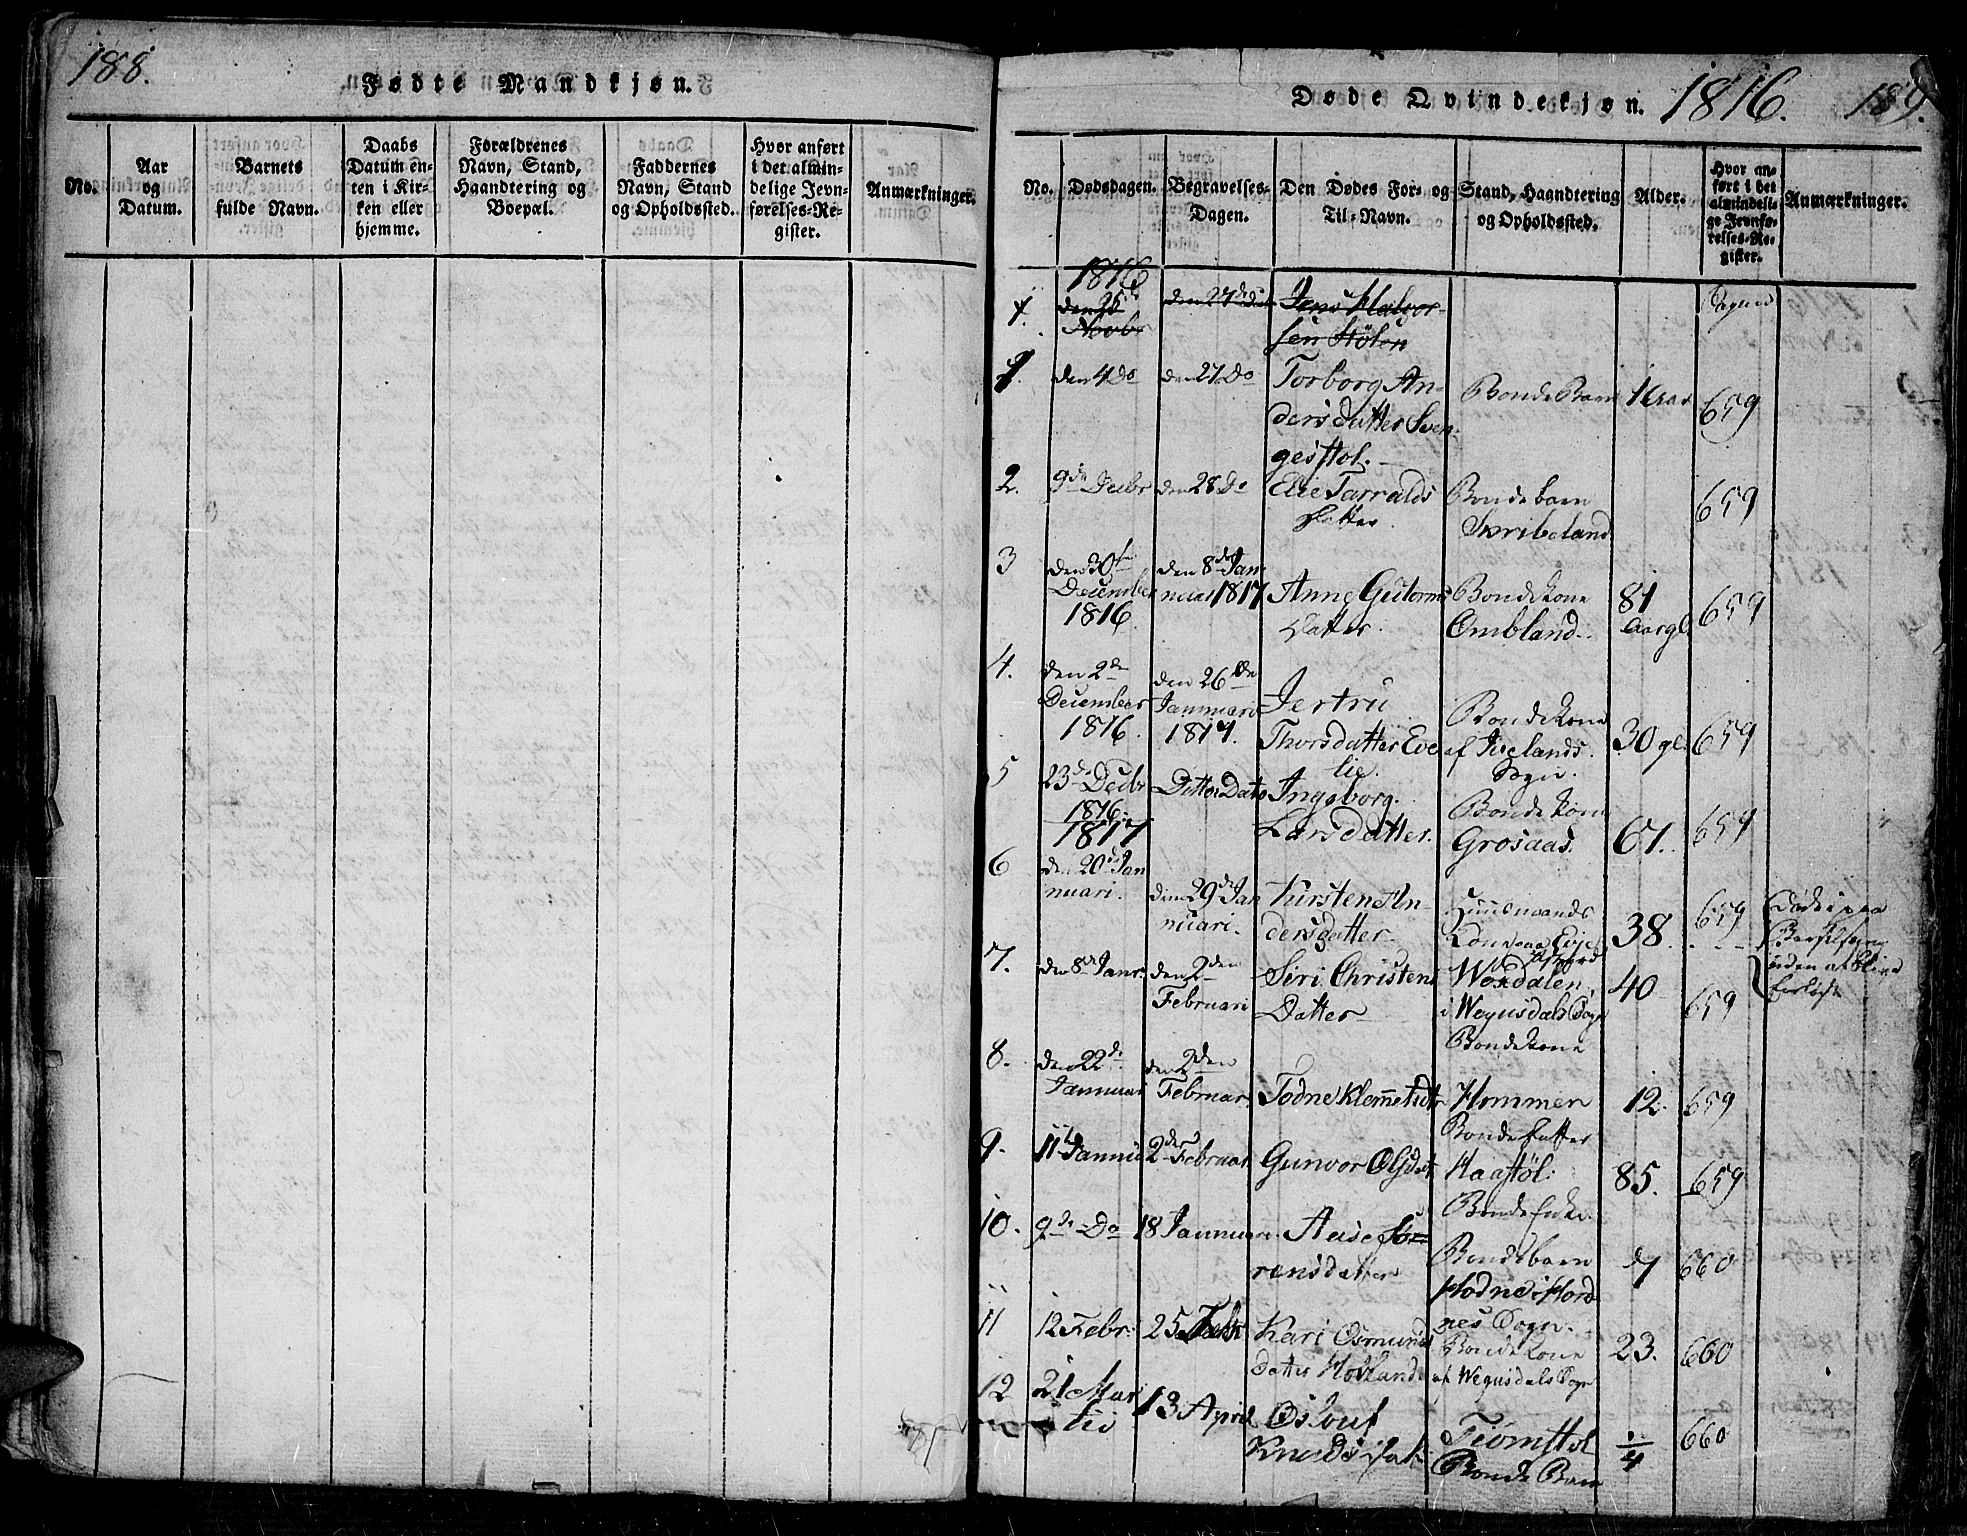 188.
Fødte Mandkjøn.
No.
Aar
og
Datum.
Barnets
fulde Navn.
Daabs
Datum en-
ten i Kir-
ken eller
hjemme.
Forældrenes
Navn, Stand,
Haandtering og
Boepæl.
Faddernes
Navn, Stand
og Opholdssted.
Hvor anført
i det almin-
delige Jevn-
førelses-Re-
gister.
Anmærkninger.
Døde Qvindekjøn. 1816. 189.
No.
Dødsdagen.
Begravelses-
Dagen.
Den Dødes For- og
Til-Navn.
Stand, Haandtering
og Opholdssted.
Alder.
Hvor an-
ført i det
almindeli-
ge Jevnfø-
relses-Re-
gister.
Anmærkninger.
1816
1.
Novbr
Jens Halvor-
sen Stølen
1. den 4 Do den 27 Do Torborg An-
dersdatter Sven-
gesstol.
Bonde Barn 1 Aar 659
2. 9de Decbr den 28 Do Elie Tarralds
Datter.
Bondebarn
Skribeland 659
3 den 30te
December
1816.
den 8de Jan-
nuari 1817
Anne Gutorms
Datter.
Bondekone
Ombland.
81
Aar gl. 659
4. den 2de
December
1816.
den 26de
Januari
1817.
Jertru
Thorsdatter Eve
lie.
Bondekone
af Ivelands
Sogn.
30 gl. 659
5 23de Decbr
1816.
Ditto Dato Ingeborg
Larsdatter.
Bondekone
Grosaas. 67. 659
1817
6 den 20de Jan
nuari.
den 29de Jan
nuari.
Kirsten An-
dersdatter.
Huusmands
Kone paa Evje
38. 659
Døde i paa
Barselseng
uden at blive
forløst
7. den 8de Janr. den 2den
Februari
Siri Christens
Datter
Wosdalen
i Wegusdals Sogn
Bondekone
40 659
8. den 22de
Januari
den 2den
Februar.
Todne Klemmetsdtr Hommen
Bonde Datter
12. 659
9. 11te Januari 2den Februar Gunvor Olsdat. Haastøl.
Bonde Enke.
85. 659
10. 9de Do 18 Januari. Aase Sør-
rensdatter
Bondebarn
Hodne i Hord
nes Sogn.
660
11 12 Febr. 25 Febr Kari Osmunds
datter Hovland
Bondekone
af Wegusdals Sogn
23. 660
12 21 Mar
tii
13 April Oslouf
Knuds Dat.
Tiomstøl
Bonde Barn
1/4 660